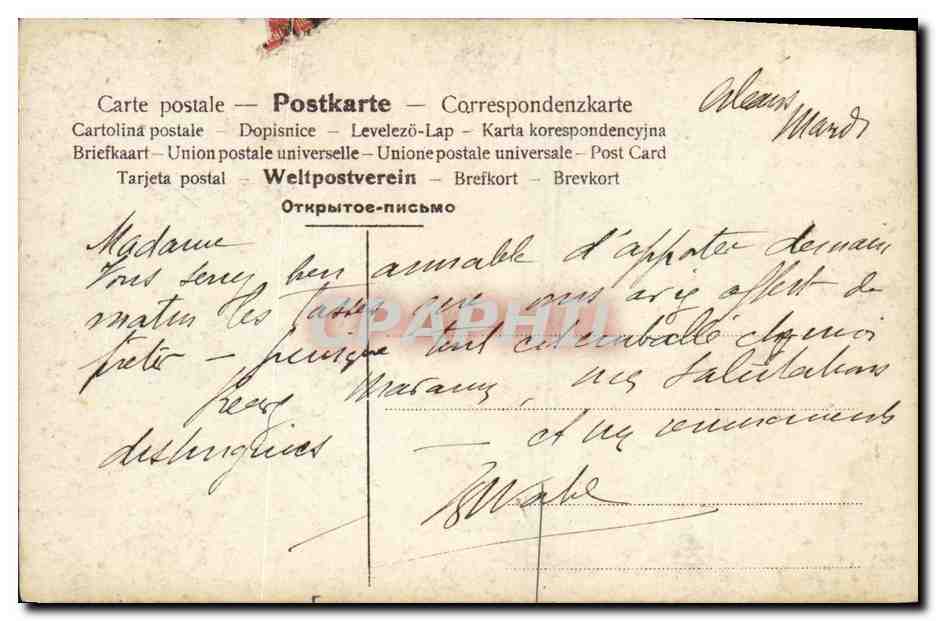 Carte postale — Postkarte — Correspondenzkarte
Cartolina postale – Dopisnice – Levelező-Lap – Karta korespondencyjna
Briefkaart – Union postale universelle – Unione postale universale – Post Card
Tarjeta postal – Weltpostverein – Brefkort – Brevkort
Открытое-письмо
Orléans
Mardi
Madame
Vous serez bien aimable d'apporter demain
matin les tasses que vous avez offert de
prêter — puisque tout est emballé chez moi
Recevez Madame, mes salutations
distinguées — et mes remerciements
CPAPHIL